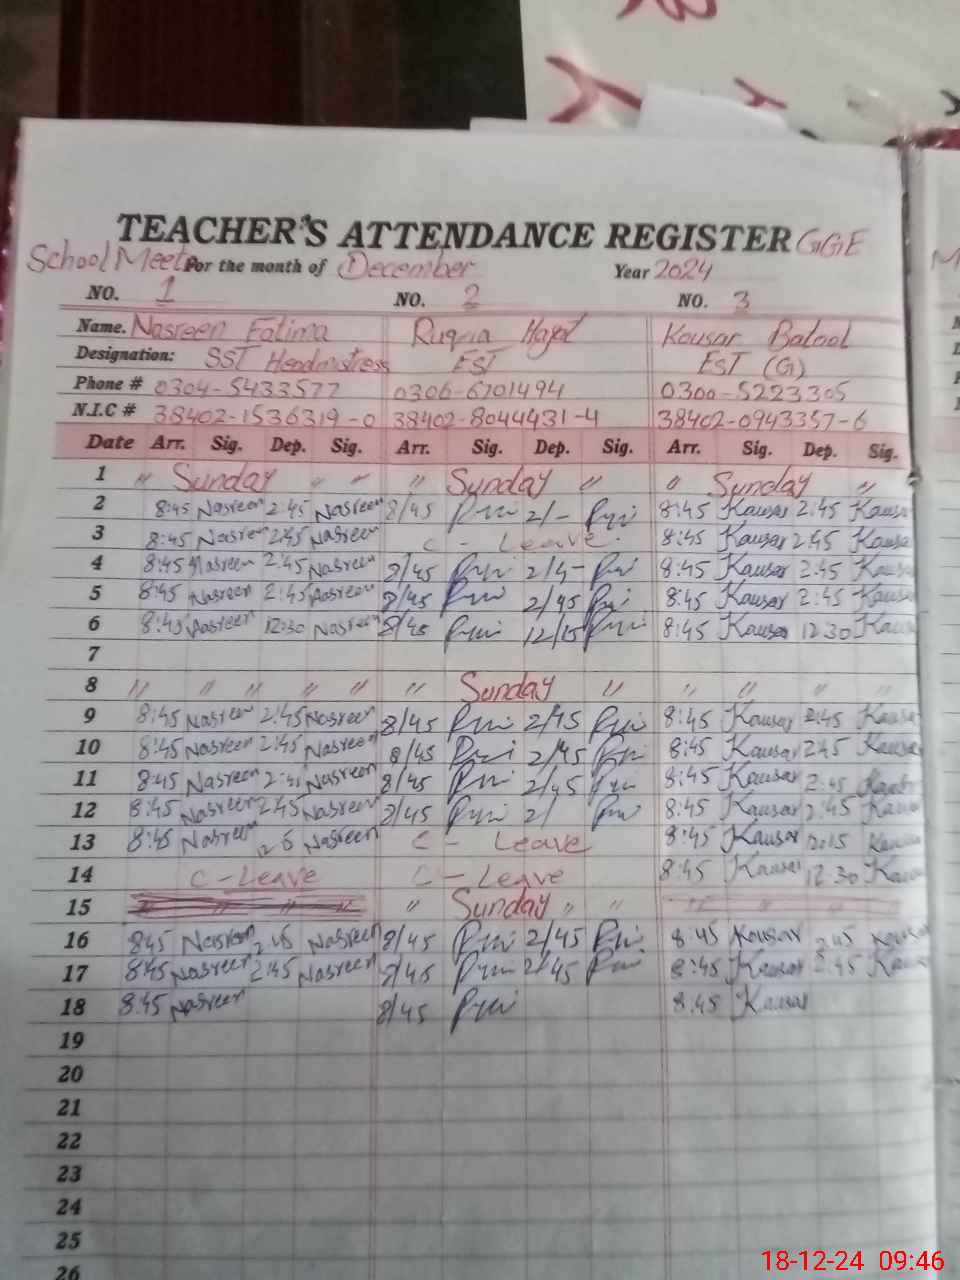 TEACHER'S ATTENDANCE REGISTER GGE
School Meet For the month of December Year 2024
NO. 1 NO. 2 NO. 3
Name. Nasreen Fatima Ruqria Hayat Kousar Batool
Designation: SST Headmistress EST EST (G)
Phone # 0304-5433577 0306-6701494 0300-5223305
N.I.C # 38402-1536319-0 38402-8044431-4 38402-0943357-6
Date Arr. Sig. Dep. Sig. Arr. Sig. Dep. Sig. Arr. Sig. Dep. Sig.
1 " Sunday " " " Sunday " " Sunday "
2 8:45 Nasreen 2:45 Nasreen 8/45 2/- 8:45 Kausar 2:45 Kausar
3 8:45 Nasreen 2:45 Nasreen C - Leave. 8:45 Kausar 2:45 Kausar
4 8:45 Nasreen 2:45 Nasreen 8/45 2/4- 8:45 Kausar 2:45 Kausar
5 8:45 Nasreen 2:45 Nasreen 8/45 2/45 8:45 Kausar 2:45 Kausar
6 8:45 Nasreen 12:30 Nasreen 8/45 12/15 8:45 Kausar 12 30 Kausar
7
8 " " " " " " Sunday " " " " "
9 8:45 Nasreen 2:45 Nasreen 8/45 2/45 8:45 Kausar 2:45 Kausar
10 8:45 Nasreen 2:45 Nasreen 8/45 2/45 8:45 Kausar 2:45 Kausar
11 8:45 Nasreen 2:45 Nasreen 8/45 2/45 8:45 Kausar 2:45 Kausar
12 8:45 Nasreen 2:45 Nasreen 8/45 2/ 8:45 Kausar 2:45 Kausar
13 8:45 Nasreen Nasreen C - Leave 8:45 Kausar 12:15 Kausar
14 C-Leave C - Leave 8:45 Kausar 12:30 Kausar
15 " Sunday " "
16 8:45 Nasreen 2:45 Nasreen 8/45 2/45 8:45 Kousar 2:45 Kousar
17 8:45 Nasreen 2:45 Nasreen 8/45 2/45 8:45 Kausar 2:45 Kausar
18 8:45 Nasreen 8/45 8:45 Kausar
19
20
21
22
23
24
25
26
18-12-24 09:46